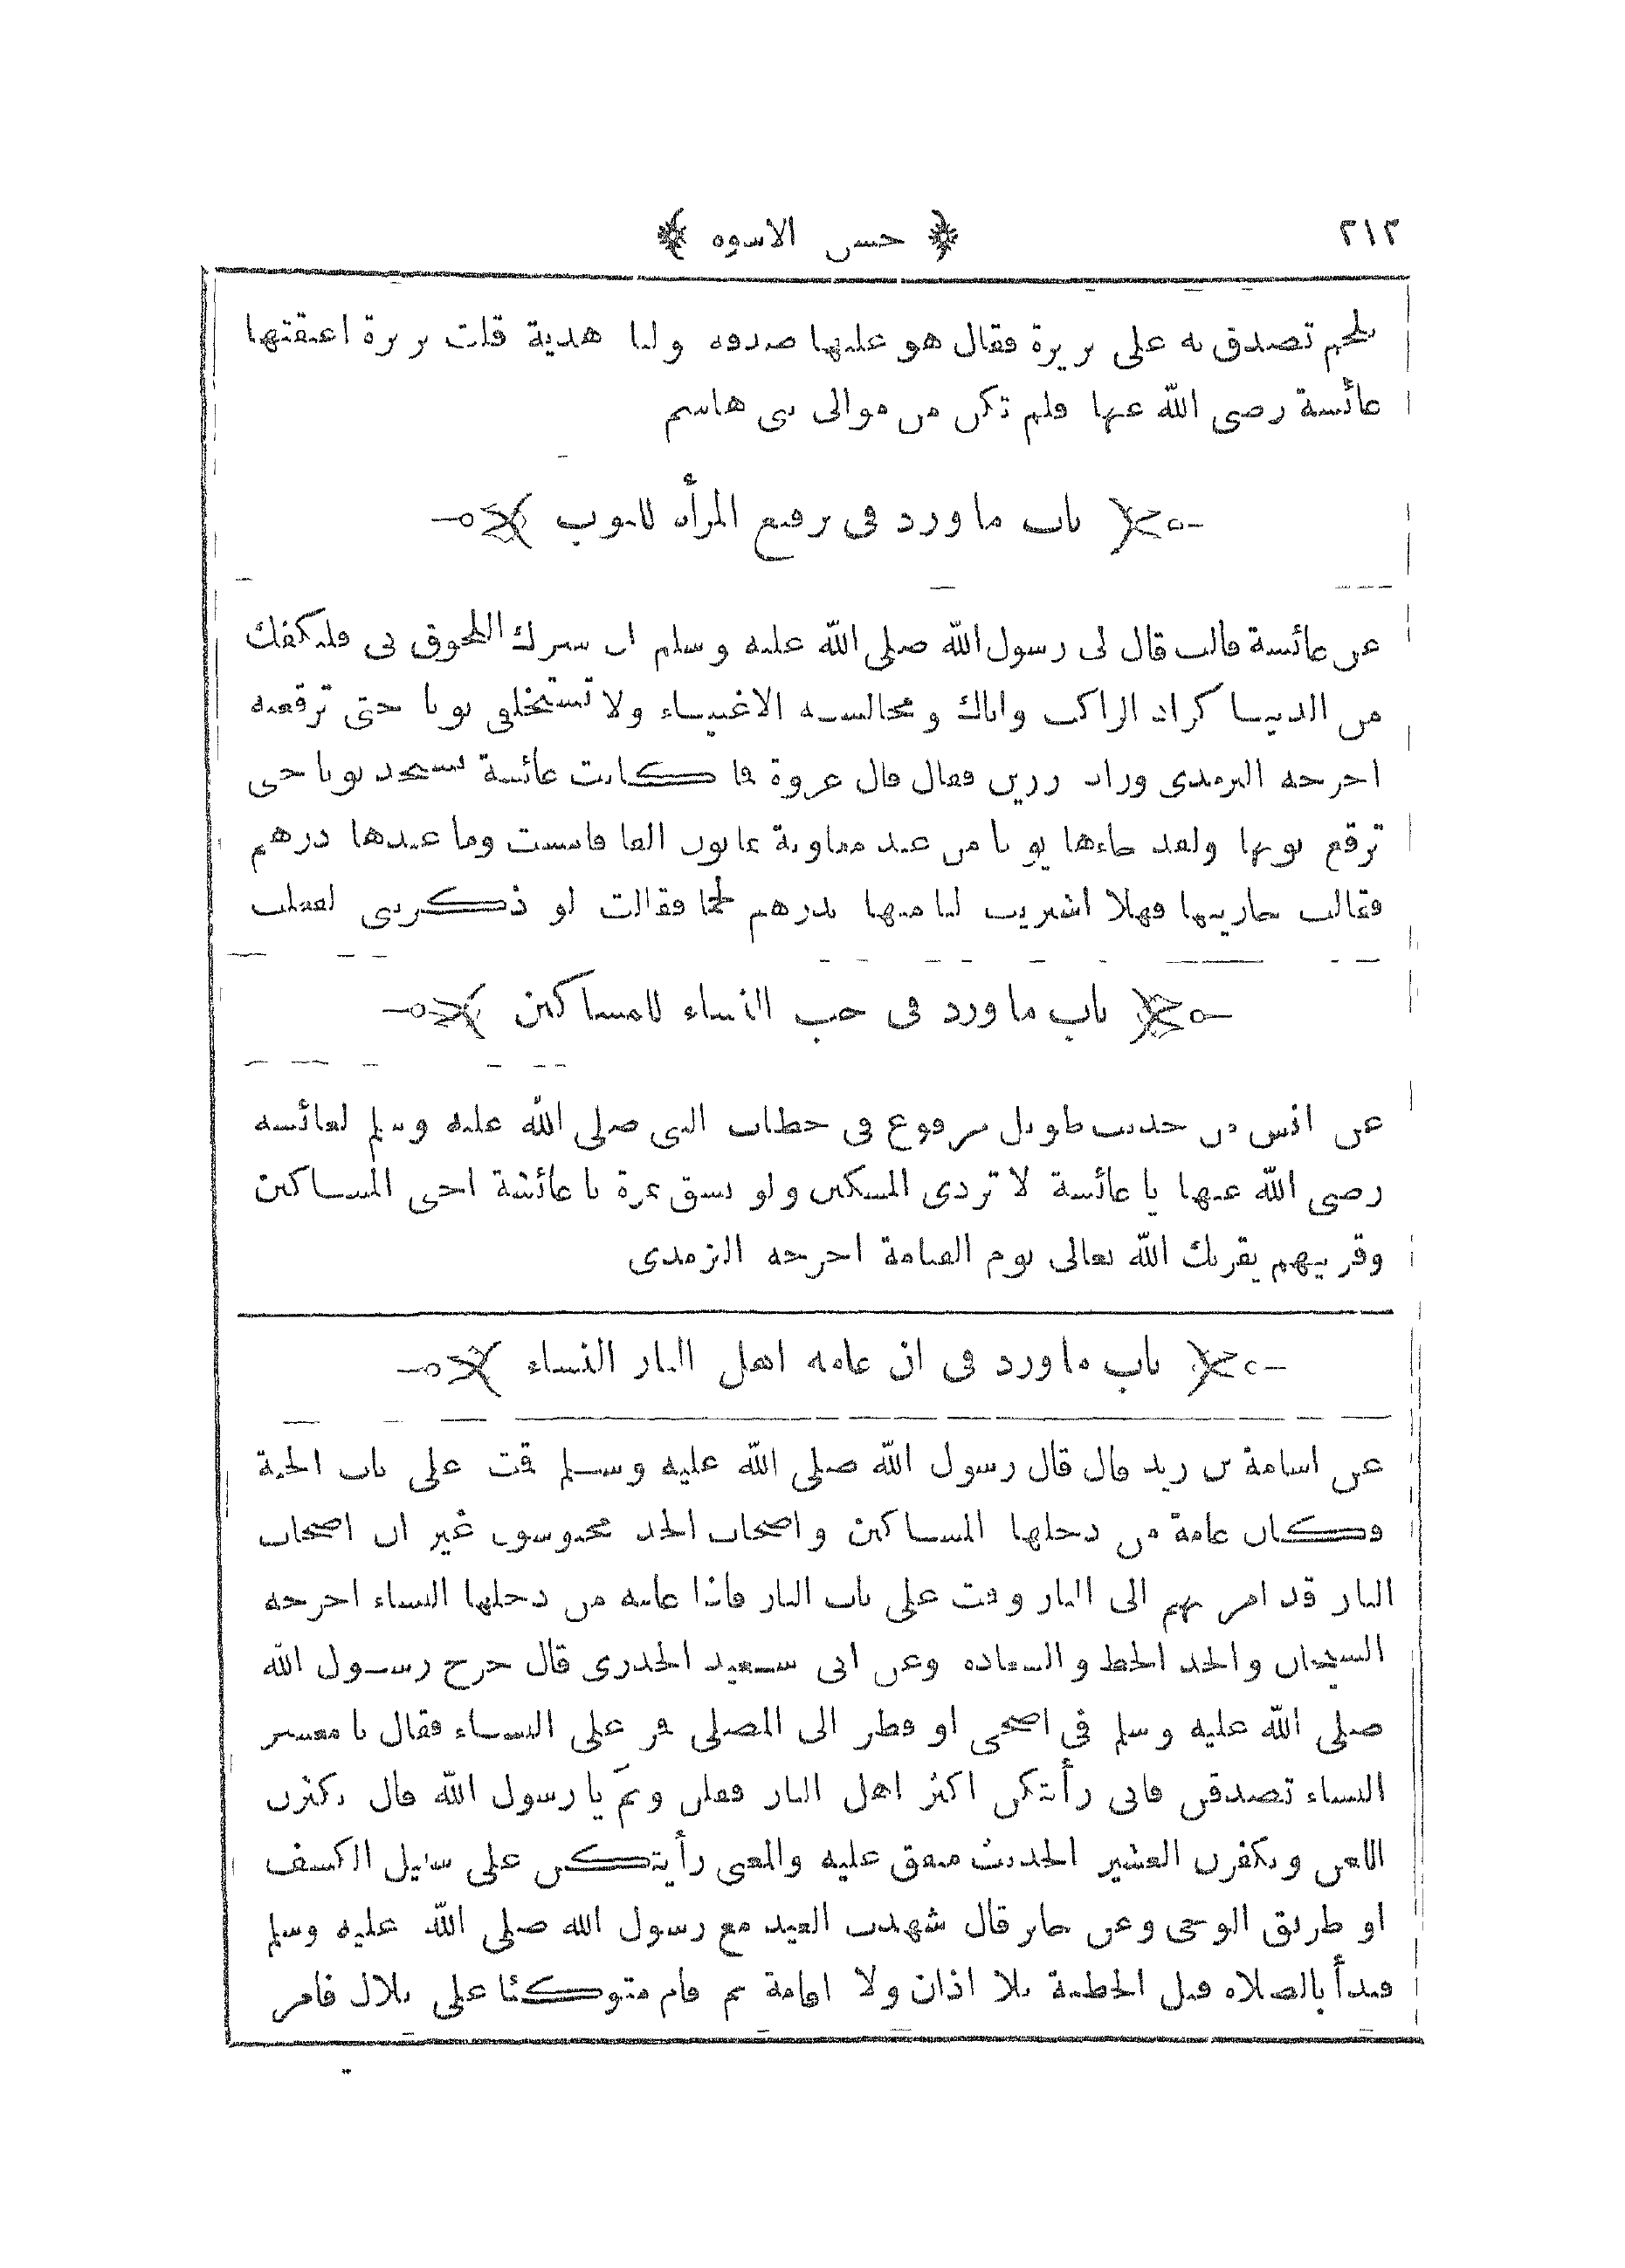 ٢١٢ ﴿ حسن الاسوة ﴾
بلحم تصدق به على بريرة فقال هو عليها صدقة ولنا هدية قلت بريرة اعتقتها
عائشة رضى الله عنها فلم تكن من موالى بنى هاشم
باب ما ورد فى ترقيع المرأة للثوب
عن عائشة قالت قال لى رسول الله صلى الله عليه وسلم ان سرك اللحوق بى فليكفك
من الدنيا كزاد الراكب واياك ومجالسة الاغنياء ولا تستخلقى ثوبا حتى ترقعيه
اخرجه الترمذى وزاد رزين فقال قال عروة فما كانت عائشة تستجد ثوبا حتى
ترقع ثوبها ولقد جاءها يوما من عند معاوية ثمانون الفا فامست وما عندها درهم
فقالت جاريتها فهلا اشتريت لنا منها بدرهم لحما فقالت لو ذكرتنى لفعلت
باب ما ورد فى حب النساء للمساكين
عن انس من حديث طويل مرفوع فى خطاب النبى صلى الله عليه وسلم لعائشة
رضى الله عنها يا عائشة لا تردى المسكين ولو بشق تمرة يا عائشة احبى المساكين
وقربيهم يقربك الله تعالى يوم القيامة اخرجه الترمذى
باب ما ورد فى ان عامة اهل النار النساء
عن اسامة بن زيد قال قال رسول الله صلى الله عليه وسلم قمت على باب الجنة
وكان عامة من دخلها المساكين واصحاب الجد محبوسون غير ان اصحاب
النار قد امر بهم الى النار وقمت على باب النار فاذا عامة من دخلها النساء اخرجه
الشيخان والجد الحظ والسعادة وعن ابى سعيد الخدرى قال خرج رسول الله
صلى الله عليه وسلم فى اضحى او فطر الى المصلى فمر على النساء فقال يا معشر
النساء تصدقن فانى رأيتكن اكثر اهل النار فقلن وبم يا رسول الله قال تكثرن
اللعن وتكفرن العشير الحديث متفق عليه والمعنى رأيتكن على سبيل الكشف
او طريق الوحى وعن جابر قال شهدت العيد مع رسول الله صلى الله عليه وسلم
فبدأ بالصلاة قبل الخطبة بلا اذان ولا اقامة ثم قام متوكئا على بلال فامر